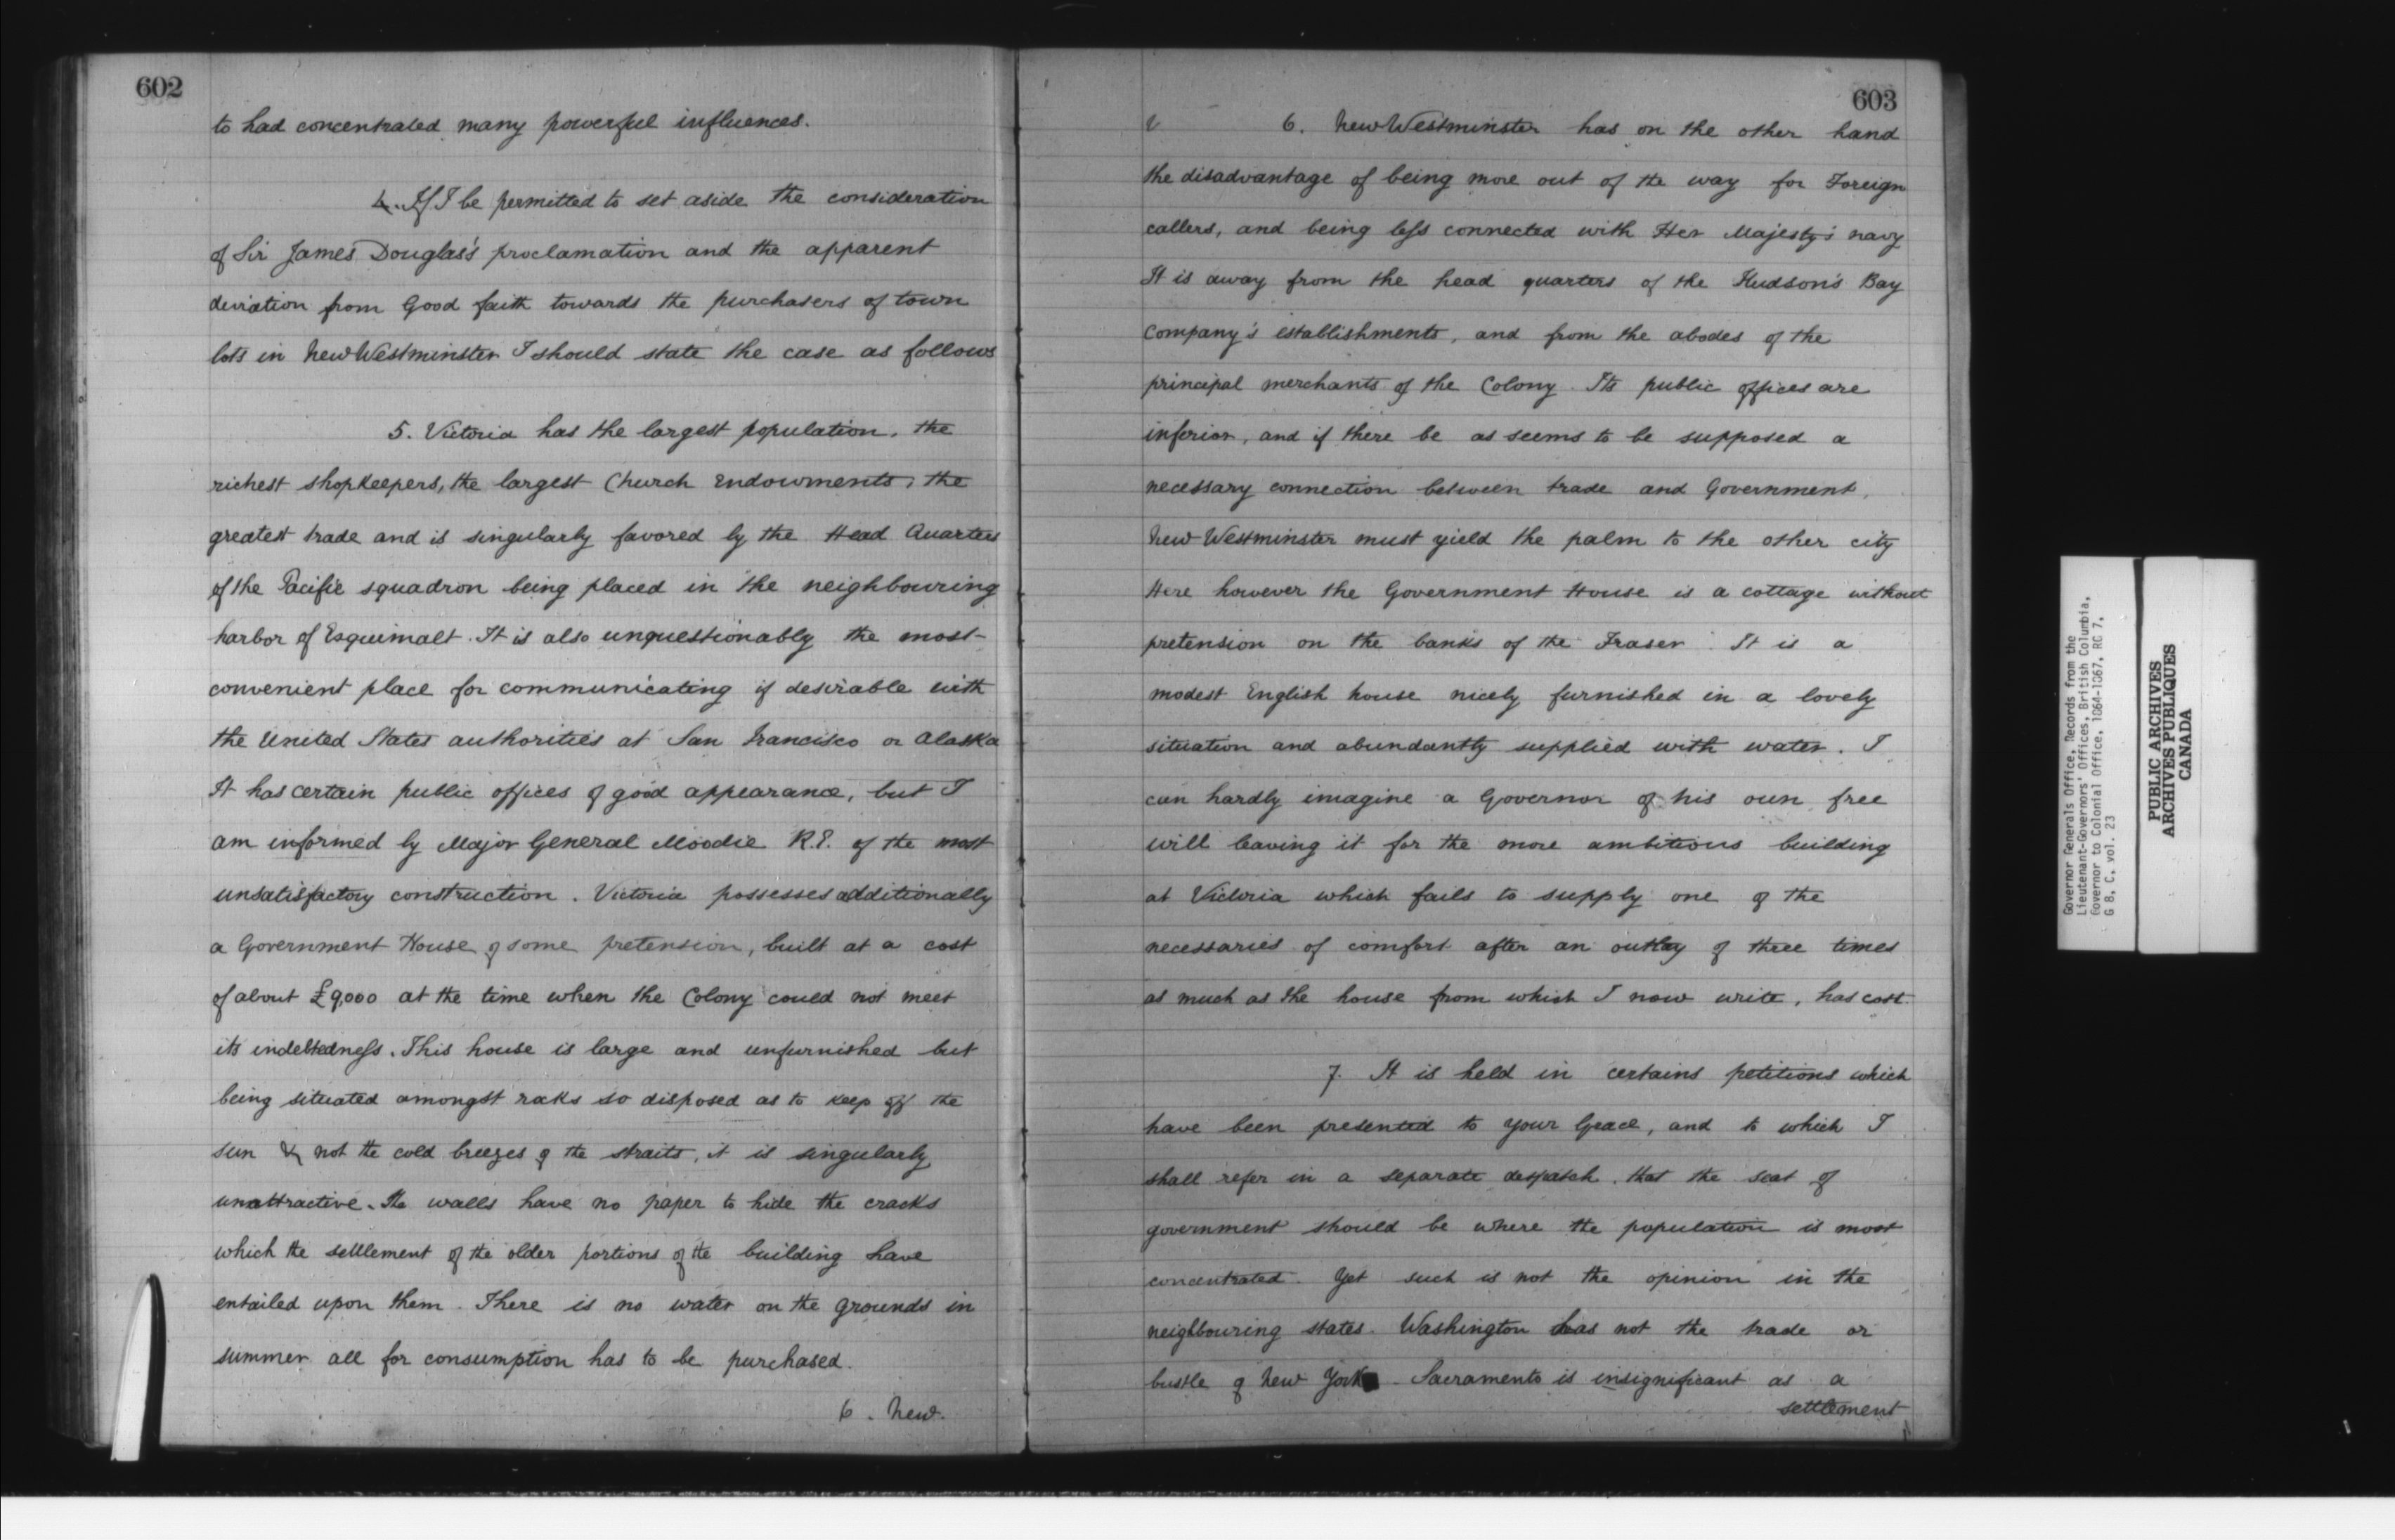 602
to had concentrated many powerful influences.
4. If I be permitted to set aside the consideration
of Sir James Douglas's proclamation and the apparent
deviation from Good faith towards the purchasers of town
lots in New Westminster I should state the case as follows
5. Victoria has the largest population, the
richest shopkeepers, the largest Church Endowments, the
greatest trade and is singularly favored by the Head Quarters
of the Pacific squadron being placed in the neighbouring
harbor of Esquimalt. It is also unquestionably the most
convenient place for communicating if desirable with
the United States authorities at San Francisco or Alaska
It has certain public offices of good appearance, but I
am informed by Major General Moodie R.E. of the most
unsatisfactory construction. Victoria possesses additionally
a Government House of some pretension, built at a cost
of about £9,000 at the time when the Colony could not meet
its indebtedness. This house is large and unfurnished but
being situated amongst rocks so disposed as to keep off the
sun & not the cold breezes of the straits, it is singularly
unattractive. The walls have no paper to hide the cracks
which the settlement of the older portions of the building have
entailed upon them. There is no water on the grounds in
summer all for consumption has to be purchased.
6. New.
603
6. New Westminster has on the other hand
the disadvantage of being more out of the way for Foreign
callers, and being less connected with Her Majesty's navy
It is away from the head quarters of the Hudson's Bay
Company's establishments, and from the abodes of the
principal merchants of the Colony. Its public offices are
inferior, and if there be as seems to be supposed a
necessary connection between trade and Government,
New Westminster must yield the palm to the other city
Here however the Government House is a cottage without
pretension on the banks of the Fraser. It is a
modest English house nicely furnished in a lovely
situation and abundantly supplied with water. I
can hardly imagine a Governor of his own free
will leaving it for the more ambitious building
at Victoria which fails to supply one of the
necessaries of comfort after an outlay of three times
as much as the house from which I now write, has cost.
7. It is held in certains petitions which
have been presented to your Grace, and to which I
shall refer in a separate despatch. that the seat of
government should be where the population is most
concentrated. Yet such is not the opinion in the
neighbouring states. Washington has not the trade or
bustle of New York. Sacramento is insignificant as a
settlement
Governor Generals Office, Records from the
Lieutenant-Governors' Offices, British Columbia,
Governor to Colonial Office, 1864-1867, RG 7,
G 8, C, vol. 23
PUBLIC ARCHIVES
ARCHIVES PUBLIQUES
CANADA